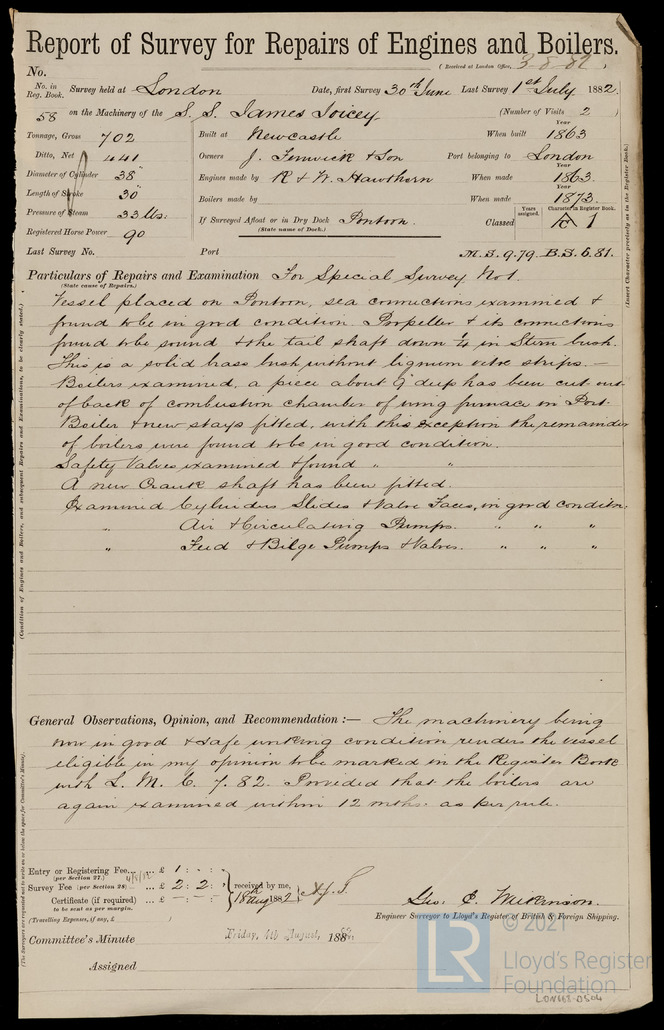 Report of Survey for Repairs of Engines and Boilers.
(Received at London Office, 3-8-82)
No.
No. in Reg. Book. Survey held at London Date, first Survey 30th June Last Survey 1st July 1882.
58 on the Machinery of the S. S. James Joicey (Number of Visits 2)
Tonnage, Gross 702 Built at Newcastle When built Year 1863
Ditto, Net 441 Owners J. Fenwick & Son Port belonging to London
Diameter of Cylinder 38" Engines made by R & W. Hawthorn When made Year 1863.
Length of Stroke 30" Boilers made by When made Year 1873.
Pressure of Steam 33 lbs. If Surveyed Afloat or in Dry Dock Pontoon. Classed Years assigned. Character in Register Book. A 1
(State name of Dock.)
Registered Horse Power 90
Last Survey No. Port M.S. 9.79. B.S. 6.81.
Particulars of Repairs and Examination For Special Survey No 1.
(State cause of Repairs.)
Vessel placed on Pontoon, sea connections examined &
found to be in good condition. Propeller & its connections
found to be sound & the tail shaft down 1/4 in Stern bush.
This is a solid brass bush without lignum vitæ strips. —
Boilers examined, a piece about 9" deep has been cut out
of back of combustion chamber of wing furnace in Port
Boiler & new stays fitted, with this exception the remainder
of boilers were found to be in good condition.
Safety Valves examined & found " "
A new Crank shaft has been fitted.
Examined Cylinders Slides & Valve Faces, in good condition.
" Air & Circulating Pumps. " " "
" Feed & Bilge Pumps & Valves. " " "
General Observations, Opinion, and Recommendation :— The machinery being
now in good & safe working condition renders the vessel
eligible in my opinion to be marked in the Register Book
with L. M. C. 7. 82. Provided that the boilers are
again examined within 12 mths. as per rule.
Entry or Registering Fee... ... £ 1 : - : -
(per Section 27.)
Survey Fee (per Section 28)... ... £ 2 : 2 : received by me,
Certificate (if required) ... £ — : — : 18th Aug 1882
to be sent as per margin.
(Travelling Expenses, if any, £ )
Geo. C. Milkinson.
Engineer Surveyor to Lloyd's Register of British & Foreign Shipping.
Committee's Minute Friday, 4th August, 1882.
Assigned
(Insert Character precisely as in the Register Book.)
(Condition of Engines and Boilers, and subsequent Repairs and Examinations, to be clearly stated.)
(The Surveyors are requested not to write on or below the space for Committee's Minute.)
© 2021
LR
Lloyd's Register
Foundation
LON668-0504